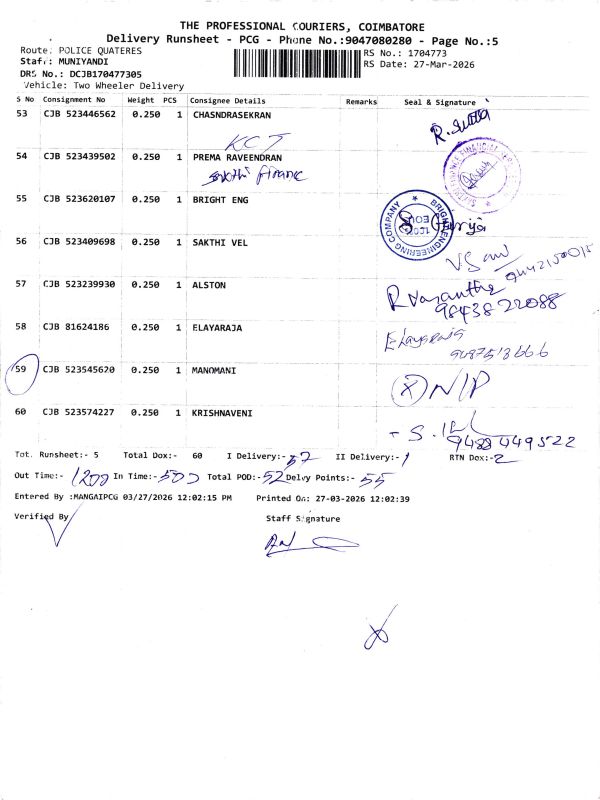 THE PROFESSIONAL COURIERS, COIMBATORE
Delivery Runsheet - PCG - Phone No.:9047080280 - Page No.:5
Route: POLICE QUATERES
RS No.: 1704773
Staff: MUNIYANDI
RS Date: 27-Mar-2026
DRS No.: DCJB170477305
Vehicle: Two Wheeler Delivery
S No Consignment No Weight PCS Consignee Details Remarks Seal & Signature
53 CJB 523446562 0.250 1 CHASNDRASEKRAN
KCT
54 CJB 523439502 0.250 1 PREMA RAVEENDRAN
Sakthi finance
55 CJB 523620107 0.250 1 BRIGHT ENG
BRIGHT ENGINEERING COMPANY
56 CJB 523409698 0.250 1 SAKTHI VEL
57 CJB 523239930 0.250 1 ALSTON
R Vasantha
98438 22088
58 CJB 81624186 0.250 1 ELAYARAJA
59 CJB 523545620 0.250 1 MANOMANI
N/P
60 CJB 523574227 0.250 1 KRISHNAVENI
Tot. Runsheet:- 5 Total Dox:- 60 I Delivery:- 57 II Delivery:- 1 RTN Dox:- 2
Out Time:- 1200 In Time:- 500 Total POD:- 52 Delvy Points:- 55
Entered By :MANGAIPCG 03/27/2026 12:02:15 PM Printed On: 27-03-2026 12:02:39
Verified By Staff Signature